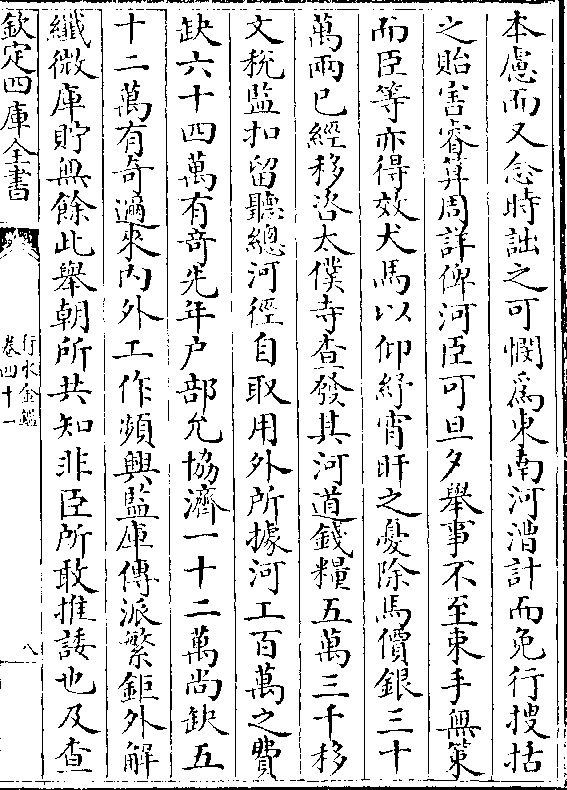 本慮而又念時詘之可憫為東南河漕計而免行搜括
之貽害睿算周詳俾河臣可旦夕舉事不至束手無策
而臣等亦得效犬馬以仰紓宵旰之憂除馬價銀三十
萬兩已經移咨太僕寺查發其河道錢糧五萬三千移
文稅監扣留聽總河徑自取用外所據河工百萬之費
缺六十四萬有奇先年户部允協濟一十二萬尚缺五
十二萬有奇邇來内外工作頻興監庫傳派繁鉅外解
纖微庫貯無餘此舉朝所共知非臣所敢推諉也及查
欽定四庫全書
行水金鑑
卷四十一
八